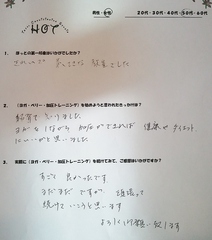 HOT
男性・女性 20代・30代・40代・50代・60代
1. ほっとの第一印象はいかがでしたか?
きれいで あったかな 教室でした
2. (ヨガ・ベリー・加圧トレーニング)を始めようと思われたきっかけは?
紹介で 知りました
ヨガをしながら 加圧ができれば 健康やダイエット
にいいかと思います
3. 実際に(ヨガ・ベリー・加圧トレーニング)を受けてみて、ご感想はいかがですか?
すごく 良かったです
まだまだ ですが、頑張って
続けて いこうと思います
よろしくお願い致します